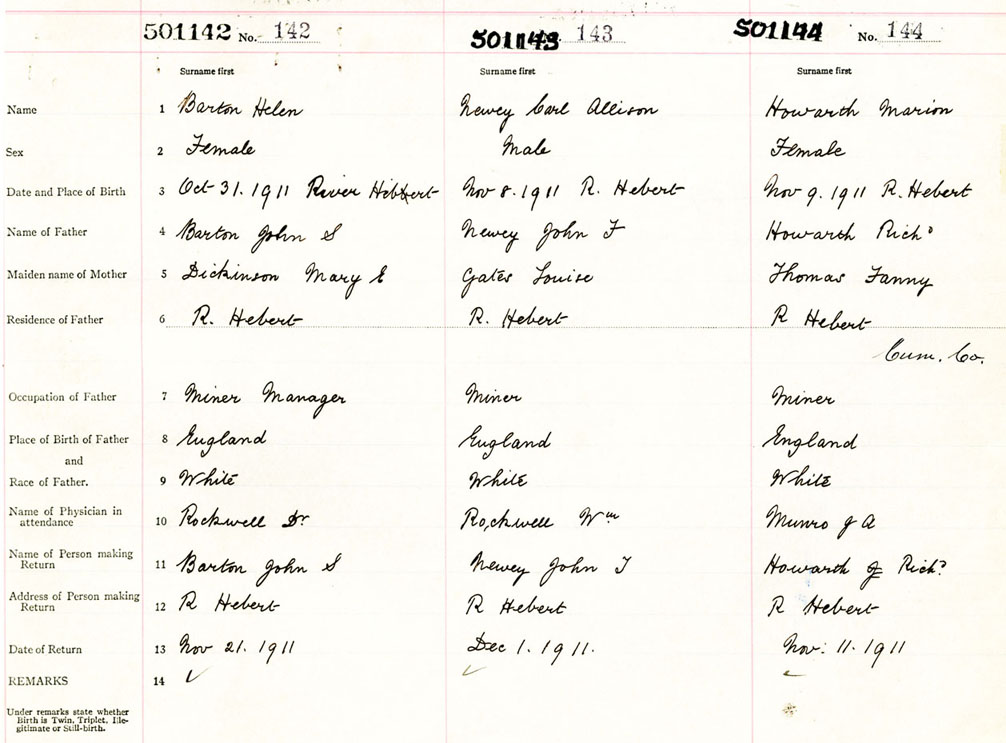 501142 No. 142 501143 143 501144 No. 144
Surname first Surname first Surname first
Name 1 Barton Helen Newey Carl Allison Howarth Marion
Sex 2 Female Male Female
Date and Place of Birth 3 Oct 31. 1911 River Hibbert Nov 8. 1911 R. Hebert Nov 9. 1911 R. Hebert
Name of Father 4 Barton John S Newey John F Howarth Richd
Maiden name of Mother 5 Dickinson Mary E Gates Louise Thomas Fanny
Residence of Father 6 R. Hebert R. Hebert R Hebert
Cum. Co.
Occupation of Father 7 Miner Manager Miner Miner
Place of Birth of Father 8 England England England
and
Race of Father. 9 White White White
Name of Physician in
attendance 10 Rockwell Dr Rockwell Wm Munro J A
Name of Person making
Return 11 Barton John S Newey John F Howarth Richd.
Address of Person making
Return 12 R Hebert R Hebert R Hebert
Date of Return 13 Nov 21. 1911 Dec 1. 1911. Nov: 11. 1911
REMARKS 14 ✓ ✓ ✓
Under remarks state whether
Birth is Twin, Triplet, Ille-
gitimate or Still-birth.